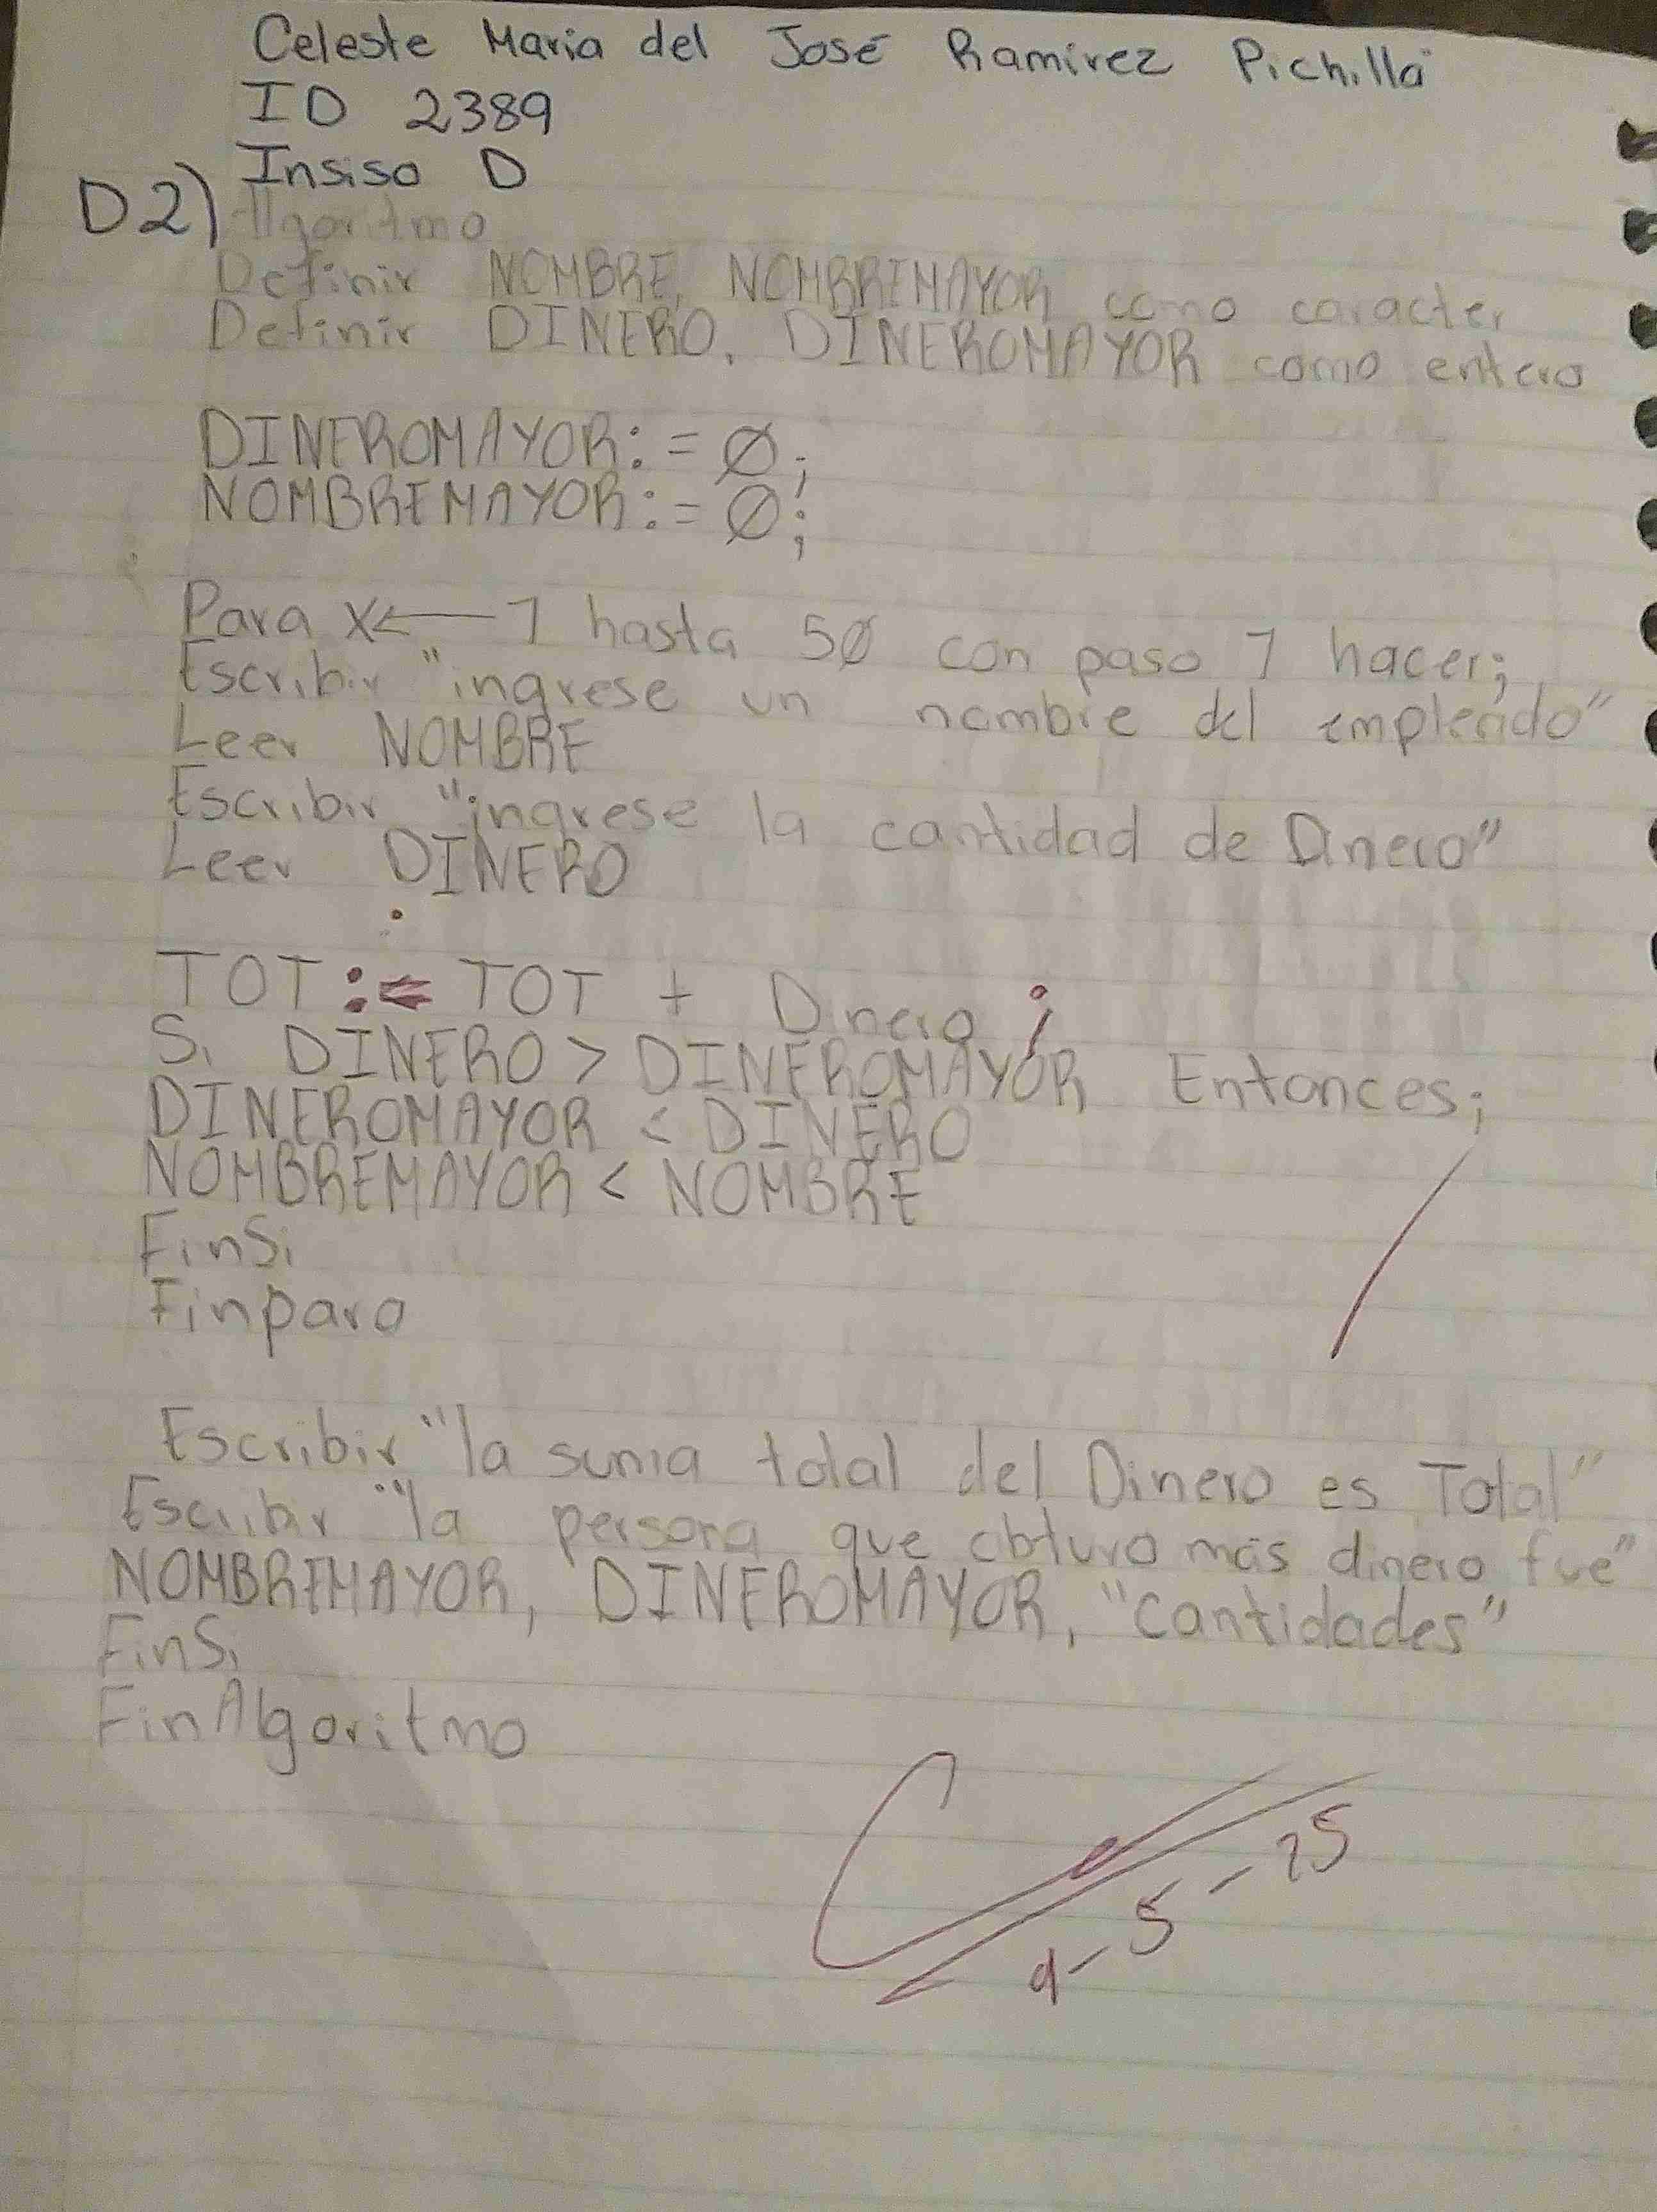 Celeste Maria del José Ramirez Pichilla
ID 2389
Insiso D
D2) Algoritmo
Definir NOMBRE, NOMBREMAYOR como caracter
Definir DINERO, DINEROMAYOR como entero
DINEROMAYOR:= Ø;
NOMBREMAYOR:= Ø;
Para x← 1 hasta 5Ø con paso 1 hacer;
Escribir "ingrese un nombre del empleado"
Leer NOMBRE
Escribir "ingrese la cantidad de Dinero"
Leer DINERO
TOT := TOT + Dinero ;
Si DINERO > DINEROMAYOR Entonces;
DINEROMAYOR < DINERO
NOMBREMAYOR < NOMBRE
FinSi
Finpara
Escribir "la suma total del Dinero es Total"
Escribir "la persona que obtuvo más dinero fue"
NOMBREMAYOR, DINEROMAYOR, "Cantidades"
FinSi
FinAlgoritmo
9-5-25